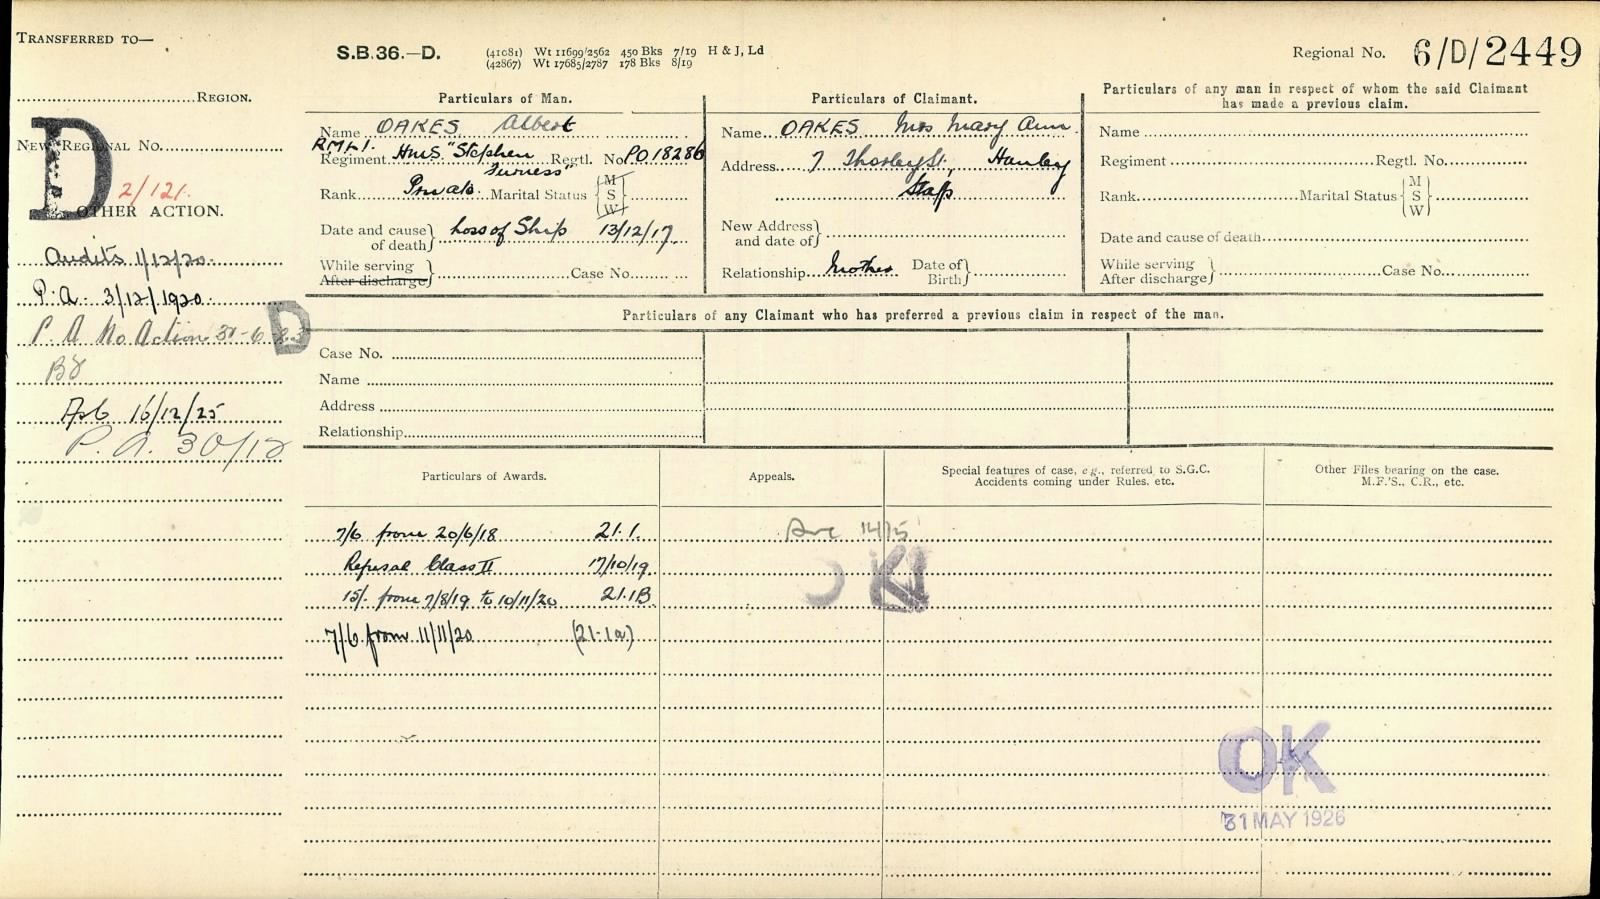 TRANSFERRED TO—
S.B.36.—D.
(41081) Wt 11699/2562 450 Bks 7/19 H & J, Ld
(42867) Wt 17685/2787 178 Bks 8/19
Regional No. 6/D/2449
REGION.
NEW REGIONAL No.
D
2/121.
OTHER ACTION.
Audits 1/12/20.
P.A. 3/12/1920.
P.A No Action 30-6-23
D
16/12/25
P.A. 30/12
Particulars of Man.
Name OAKES Albert
RMLI.
Regiment HMS "Stephen Furness" Regtl. No. PO.18286
Rank Private. Marital Status {M S W}
Date and cause of death} Loss of Ship 13/12/17.
While serving
After discharge} Case No.
Particulars of Claimant.
Name OAKES Mrs Mary Ann.
Address 7 Thorley St., Hanley
Staffs
New Address and date of}
Relationship Mother Date of Birth}
Particulars of any man in respect of whom the said Claimant
has made a previous claim.
Name
Regiment Regtl. No.
Rank Marital Status {M S W}
Date and cause of death
While serving
After discharge} Case No.
Particulars of any Claimant who has preferred a previous claim in respect of the man.
Case No.
Name
Address
Relationship
Particulars of Awards.
7/6 from 20/6/18 21.1.
Refusal Class II 17/10/19.
15/. from 7/8/19 to 10/11/20 21.1B.
7/6 from 11/11/20 (21-1a)
Appeals.
14/5
OK
Special features of case, e.g., referred to S.G.C.
Accidents coming under Rules, etc.
Other Files bearing on the case.
M.F.'S., C.R., etc.
OK
31 MAY 1926